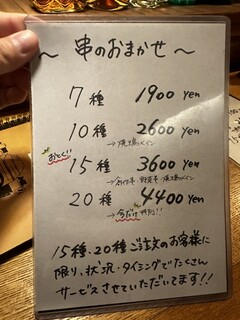 ～ 串のおまかせ ～
7種 1900 yen
10種 2600 yen
→焼き鳥メイン
おとく!!
15種 3600 yen
20種 4400 yen
→今だけ特別!!
15種・20種ご注文のお客様に
限り、状況・タイミングでたくさん
サービスさせていただいてます!!